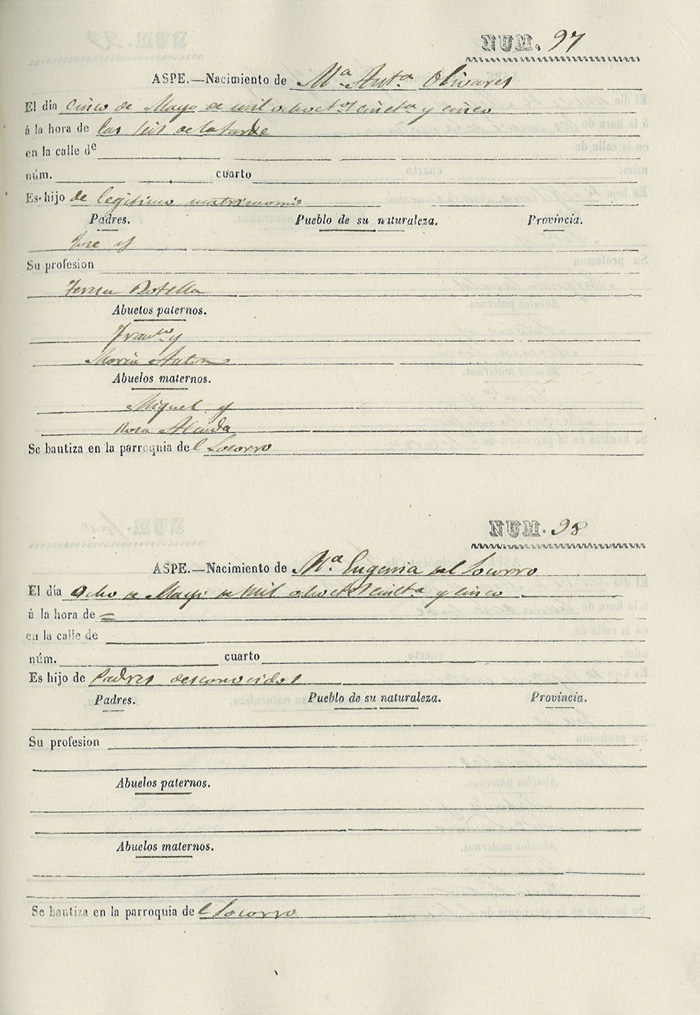 NUM. 97
ASPE.—Nacimiento de Mª. Antª. Olivares
El día cinco de Mayo de mil ochoctos cincta y cinco
á la hora de las seis de la tarde
en la calle de
núm. cuarto
Es hijo de legitimo matrimonio
Padres. Pueblo de su naturaleza. Provincia.
Jose y
Su profesion
Teresa Botella
Abuelos paternos.
Francco y
Maria Anton
Abuelos maternos.
Miguel y
Rosa
Se bautiza en la parroquia del Socorro
NUM. 98
ASPE.—Nacimiento de Mª. Eugenia del Socorro
El día ocho de Mayo de mil ochoctos cincta y cinco
á la hora de =
en la calle de
núm. cuarto
Es hijo de Padres desconocidos
Padres. Pueblo de su naturaleza. Provincia.
Su profesion
Abuelos paternos.
Abuelos maternos.
Se bautiza en la parroquia del Socorro